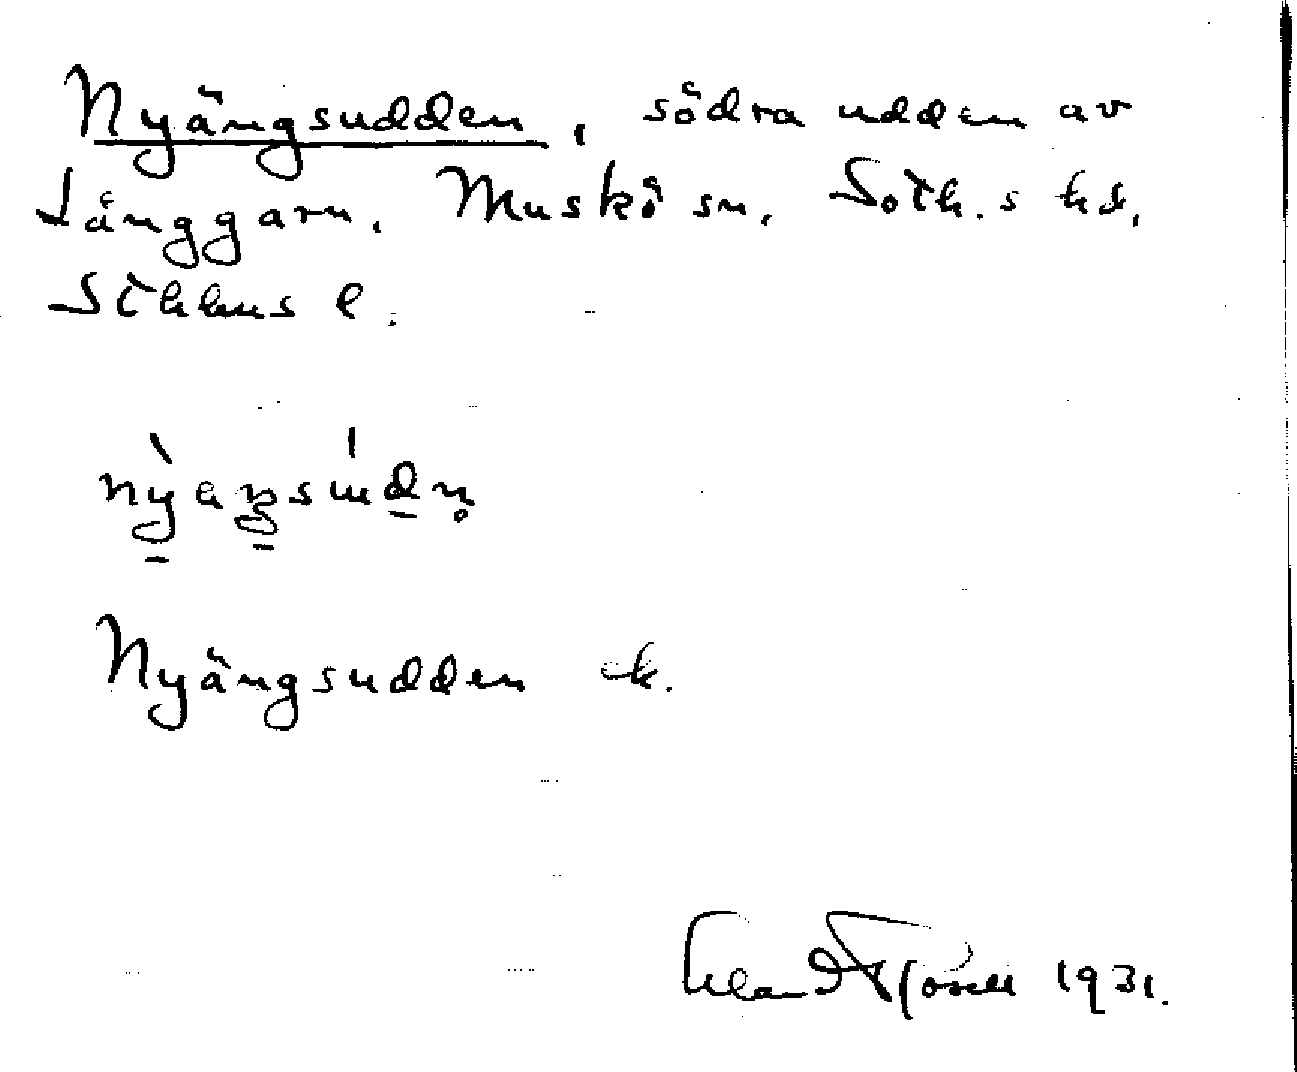 Nyängsudden, södra udden av
Långgarn. Muskö sn. Soth.s hd,
Sthlms l.
Nyängsudden ek.
1931.